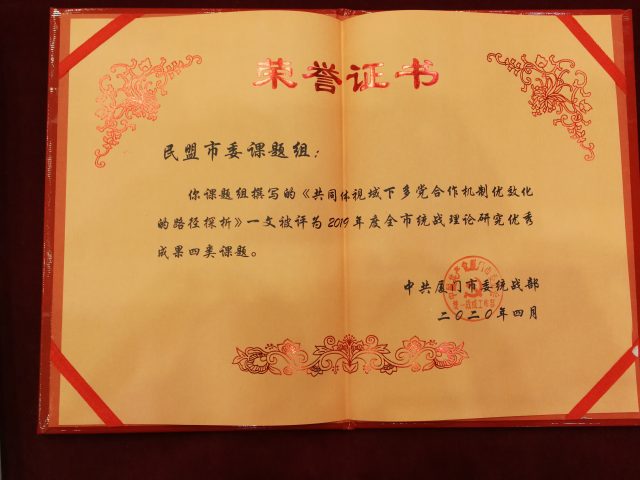 荣誉证书
民盟市委课题组：
你课题组撰写的《共同体视域下多党合作机制优效化
的路径探析》一文被评为2019年度全市统战理论研究优秀
成果四类课题。
中共厦门市委统战部
二〇二〇年四月